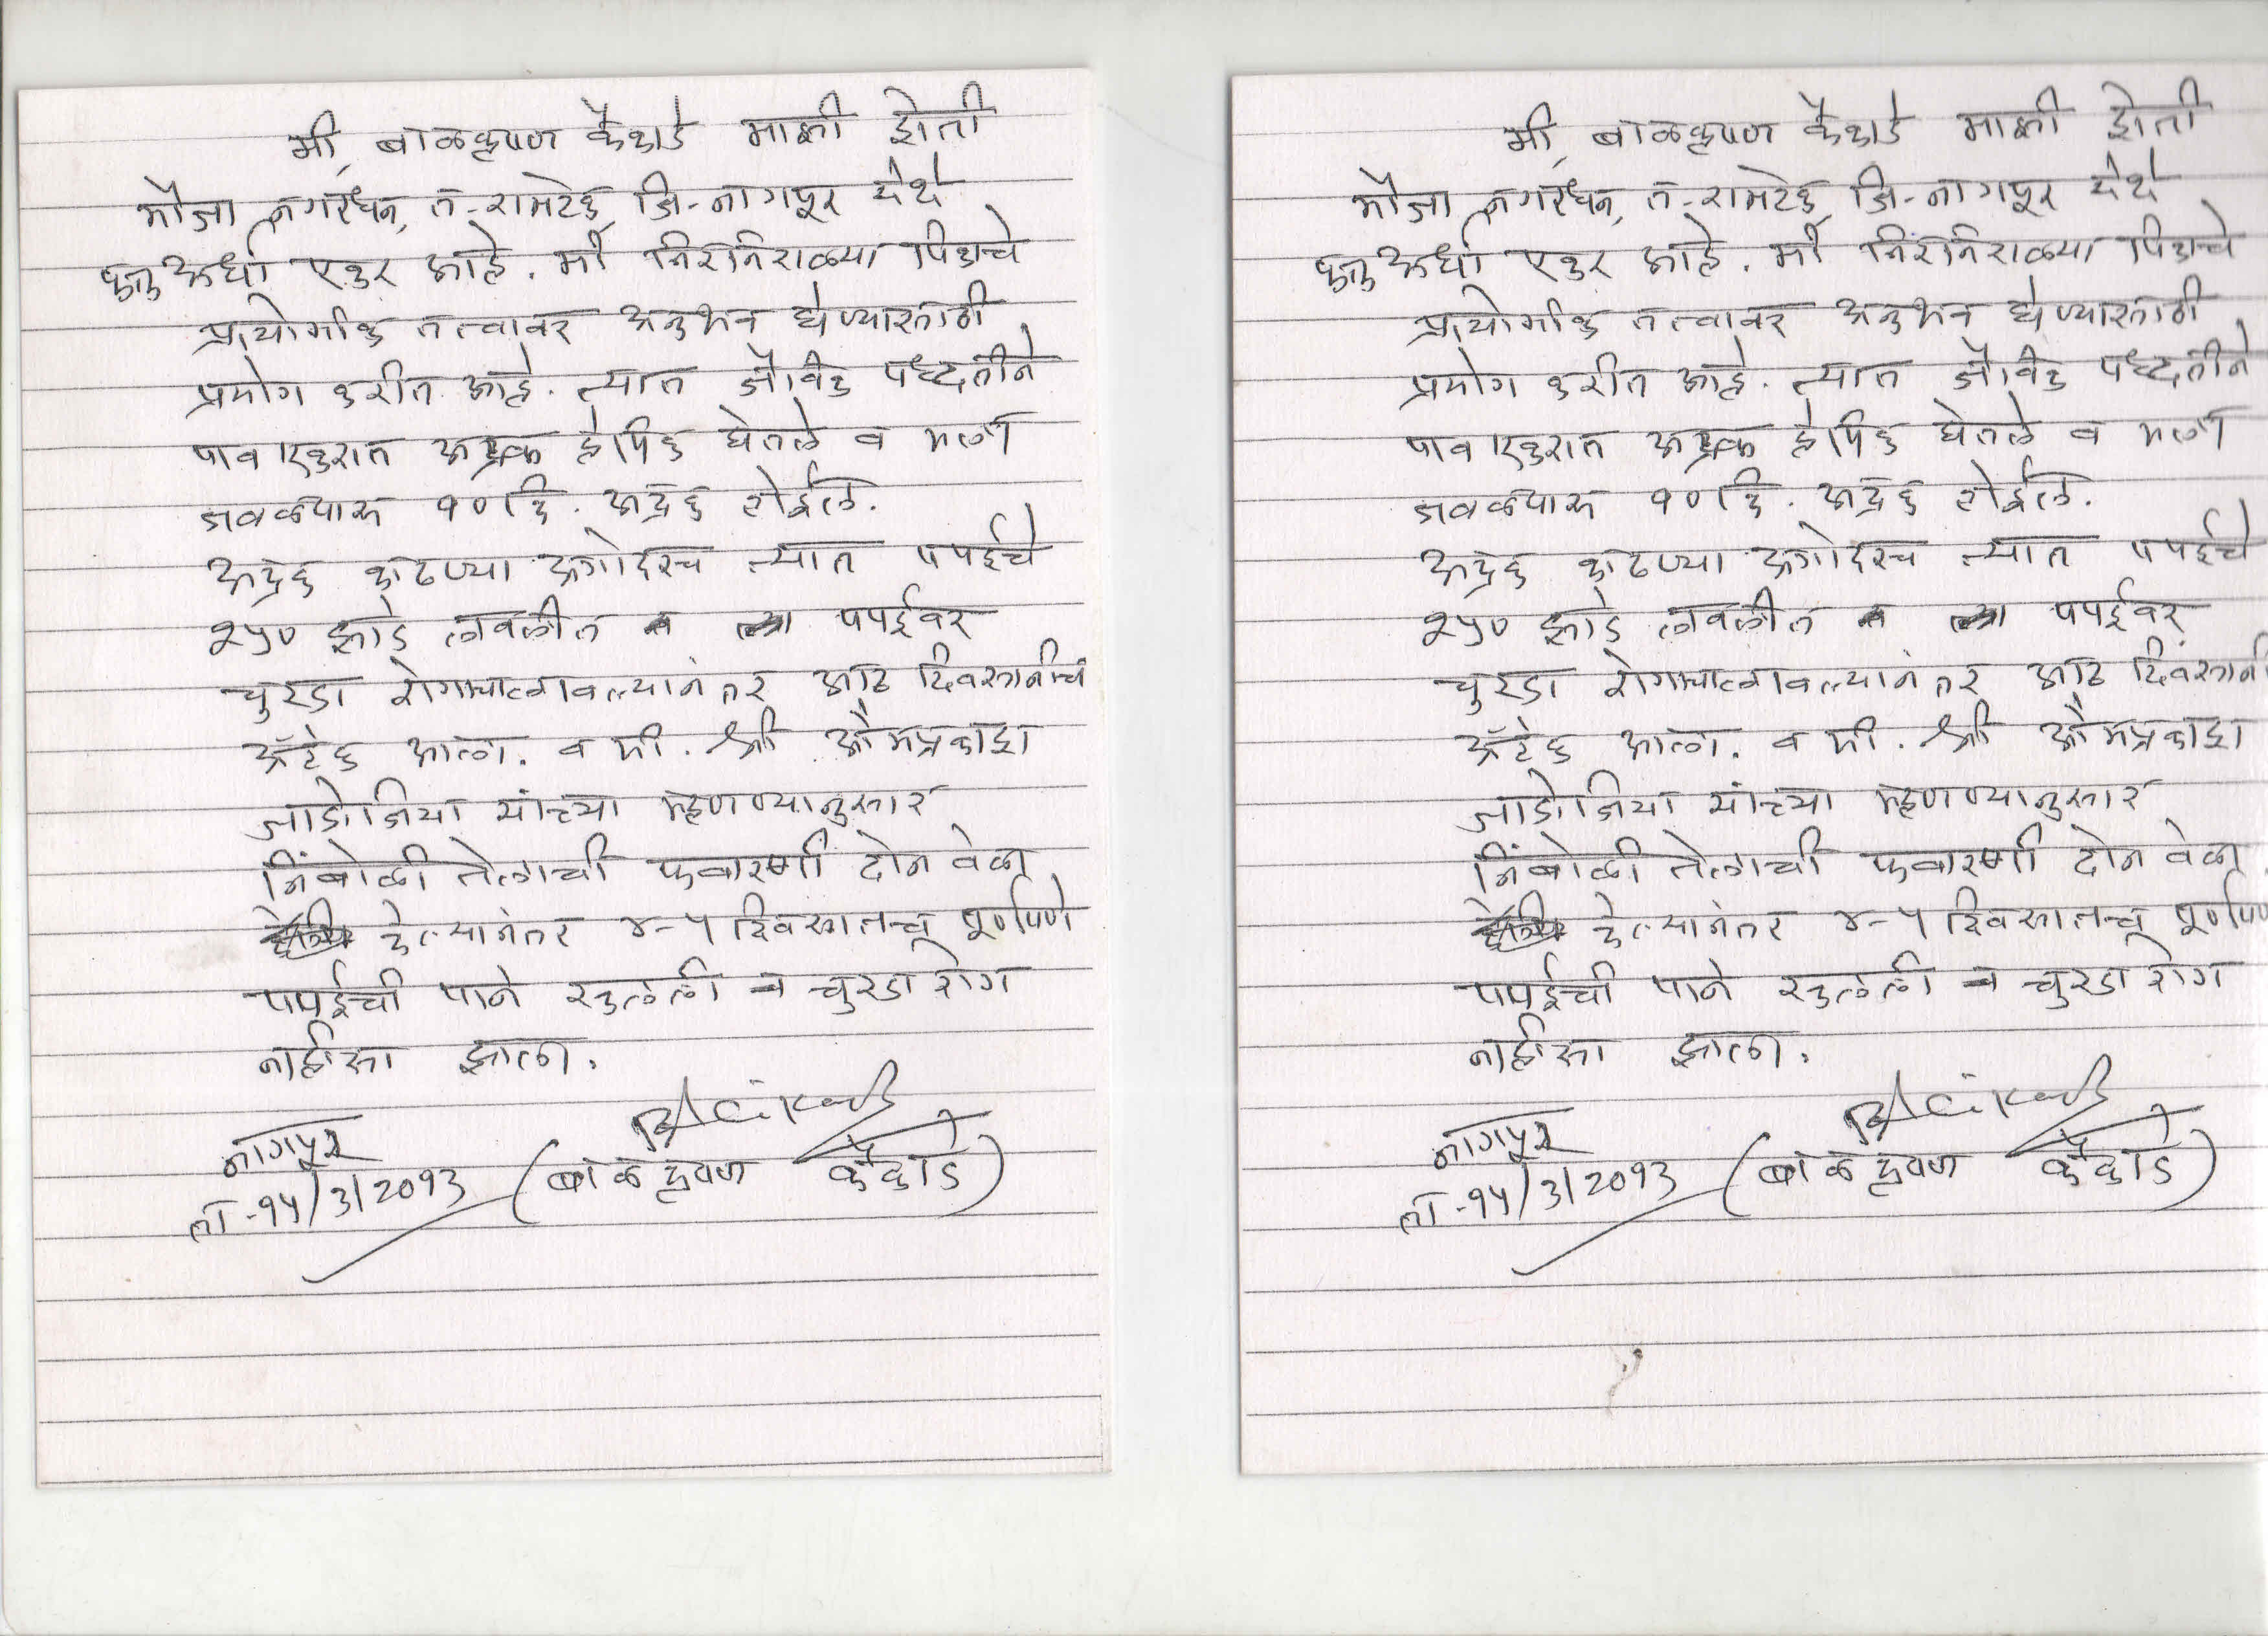 मी, बाळकृष्ण कैकाडे माझी शेती
मौजा नगरधन, त-रामटेक, जि-नागपूर येथे
फक्त अर्धा एकर आहे. मी निरनिराळ्या पिकाचे
प्रायोगीक तत्वावर अनुभव घेण्यासाठी
प्रयोग करीत आहे. त्यात जैविक पध्दतीने
पाव एकरात अद्रक हे पिक घेतले व मला
जवळपास १० क्वि. अद्रक होईल.
अद्रक काढण्या अगोदरच त्यात पपईचे
२५० झाडे लावलीत व त्या पपईवर
चुरडा रोगाचा लावल्यानंतर आठ दिवसानीच
अॅटेक आला. व मी. श्री ओमप्रकाश
जाजोदिया यांच्या म्हणण्यानुसार
निंबोळी तेलाची फवारणी दोन वेळा
केल्यानंतर ४-५ दिवसातच पूर्णपणे
पपईची पाने खुलली व चुरडा रोग
नाहीसा झाला.
नागपूर
ता-१५/3/2०१3 (बाळकृष्ण कैकाडे)
मी, बाळकृष्ण कैकाडे माझी शेती
मौजा नगरधन, त-रामटेक, जि-नागपूर येथे
फक्त अर्धा एकर आहे. मी निरनिराळ्या पिकाचे
प्रायोगीक तत्वावर अनुभव घेण्यासाठी
प्रयोग करीत आहे. त्यात जैविक पध्दतीने
पाव एकरात अद्रक हे पिक घेतले व मला
जवळपास १० क्वि. अद्रक होईल.
अद्रक काढण्या अगोदरच त्यात पपईचे
२५० झाडे लावलीत व त्या पपईवर
चुरडा रोगाचा लावल्यानंतर आठ दिवसानी
अॅटेक आला. व मी. श्री ओमप्रकाश
जाजोदिया यांच्या म्हणण्यानुसार
निंबोळी तेलाची फवारणी दोन वेळा
केल्यानंतर ४-५ दिवसातच पूर्णपण
पपईची पाने खुलली व चुरडा रोग
नाहीसा झाला.
नागपूर
ता-१५/3/2०१3 (बाळकृष्ण कैकाडे)